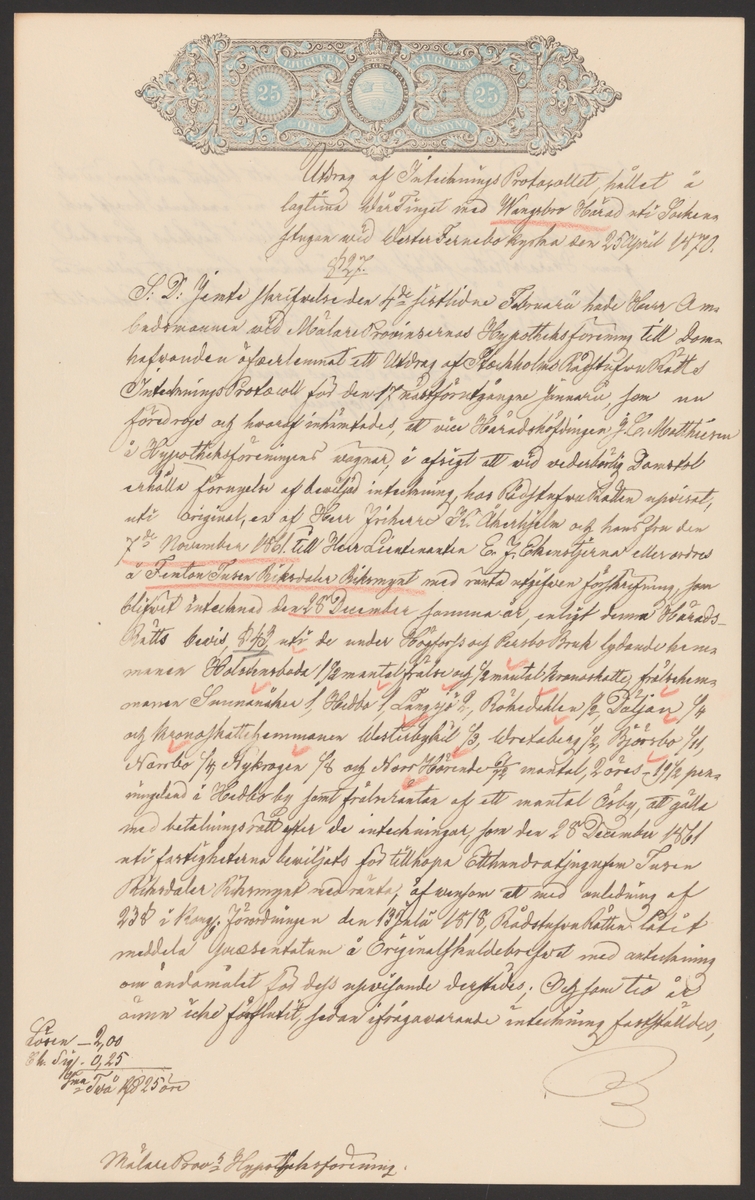 TJUGUFEM TJUGUFEM
25 25
ÖRE RIKSMYNT
Utdrag af InteckningsProtocollet, hållet å
lagtima WårTinget med Wangsbro Härad uti Sockene
Stugan wid WesterFernebo kyrka den 25 April 1870.
§ 27.
S: D: Jemte skrifvelse den 4de sistlidne Februarii hade Herr Om-
budsmannen wid MälareProvinsernas Hypotheksförening till Dom-
hafvanden öfverlemnat ett Utdrag af Stockholms RådstufvuRätts
InteckningsProtocoll för den 17 nästförutgångne Januarii, som nu
föredrogs och hvaraf inhämtades, att vice Häradshöfdingen J. L. Matthiesen
å Hypotheksföreningens vägnar, i afsigt att wid vederbörlig Domstol
erhålla förnyelse af beviljad inteckning, hos RådstufvuRätten uppvisat,
uti original, en af Herr Friherre K. Åkerhjelm och hans fru den
7de November 1861 till Herr Lieutenanten E. J. Ekenstjerna eller ordres
å Femton Tusen Riksdaler Riksmynt med ränta utgifven förskrifning, som
blifvit intecknad den 28 December samma år, enligt denna Härads-
Rätts bevis, § 43, uti de under Högfors och Persbo Bruk lydande hem-
manen Kolstensboda 1 1/2 mantal frälse och 1/2 mantal kronoskatte, frälsehem-
manen Sunnanåker 1, Hedbo 1, Långsjö 1/2, Röhedahlen 1/2, Döljan 1/4
och kronoskattehemmanen Westerbyhil 1/3, Wretaberg 1/2, Björsbo 1/4,
Norrbo 1/4, Nykrogen 1/8 och Norr Hörende mantal, 2 öres - 19 1/2 pen-
ningeland i Hedbo by samt frälseräntan af ett mantal Ösby, att gälla
med betalningsrätt efter de inteckningar, som den 28 December 1861
uti fastigheterna beviljats för tillhopa Etthundratjugufem Tusen
Riksdaler Riksmynt med ränta; äfvensom att med anledning af
23 § i Kongl. Förordningen den 13 Julii 1818, RådstufvuRätten låtit
meddela præsentatum å Originalskuldebrefvet med anteckning
om ändamålet för dess uppvisande derstädes; Och som tio år
ännu icke förflutit, sedan ifrågavarande inteckning fastställdes,
Lösen - 2,00
Ch. Sig. - 0,25
Rmt Två Rd 25 öre
MälareProv:s Hypotheksförening.